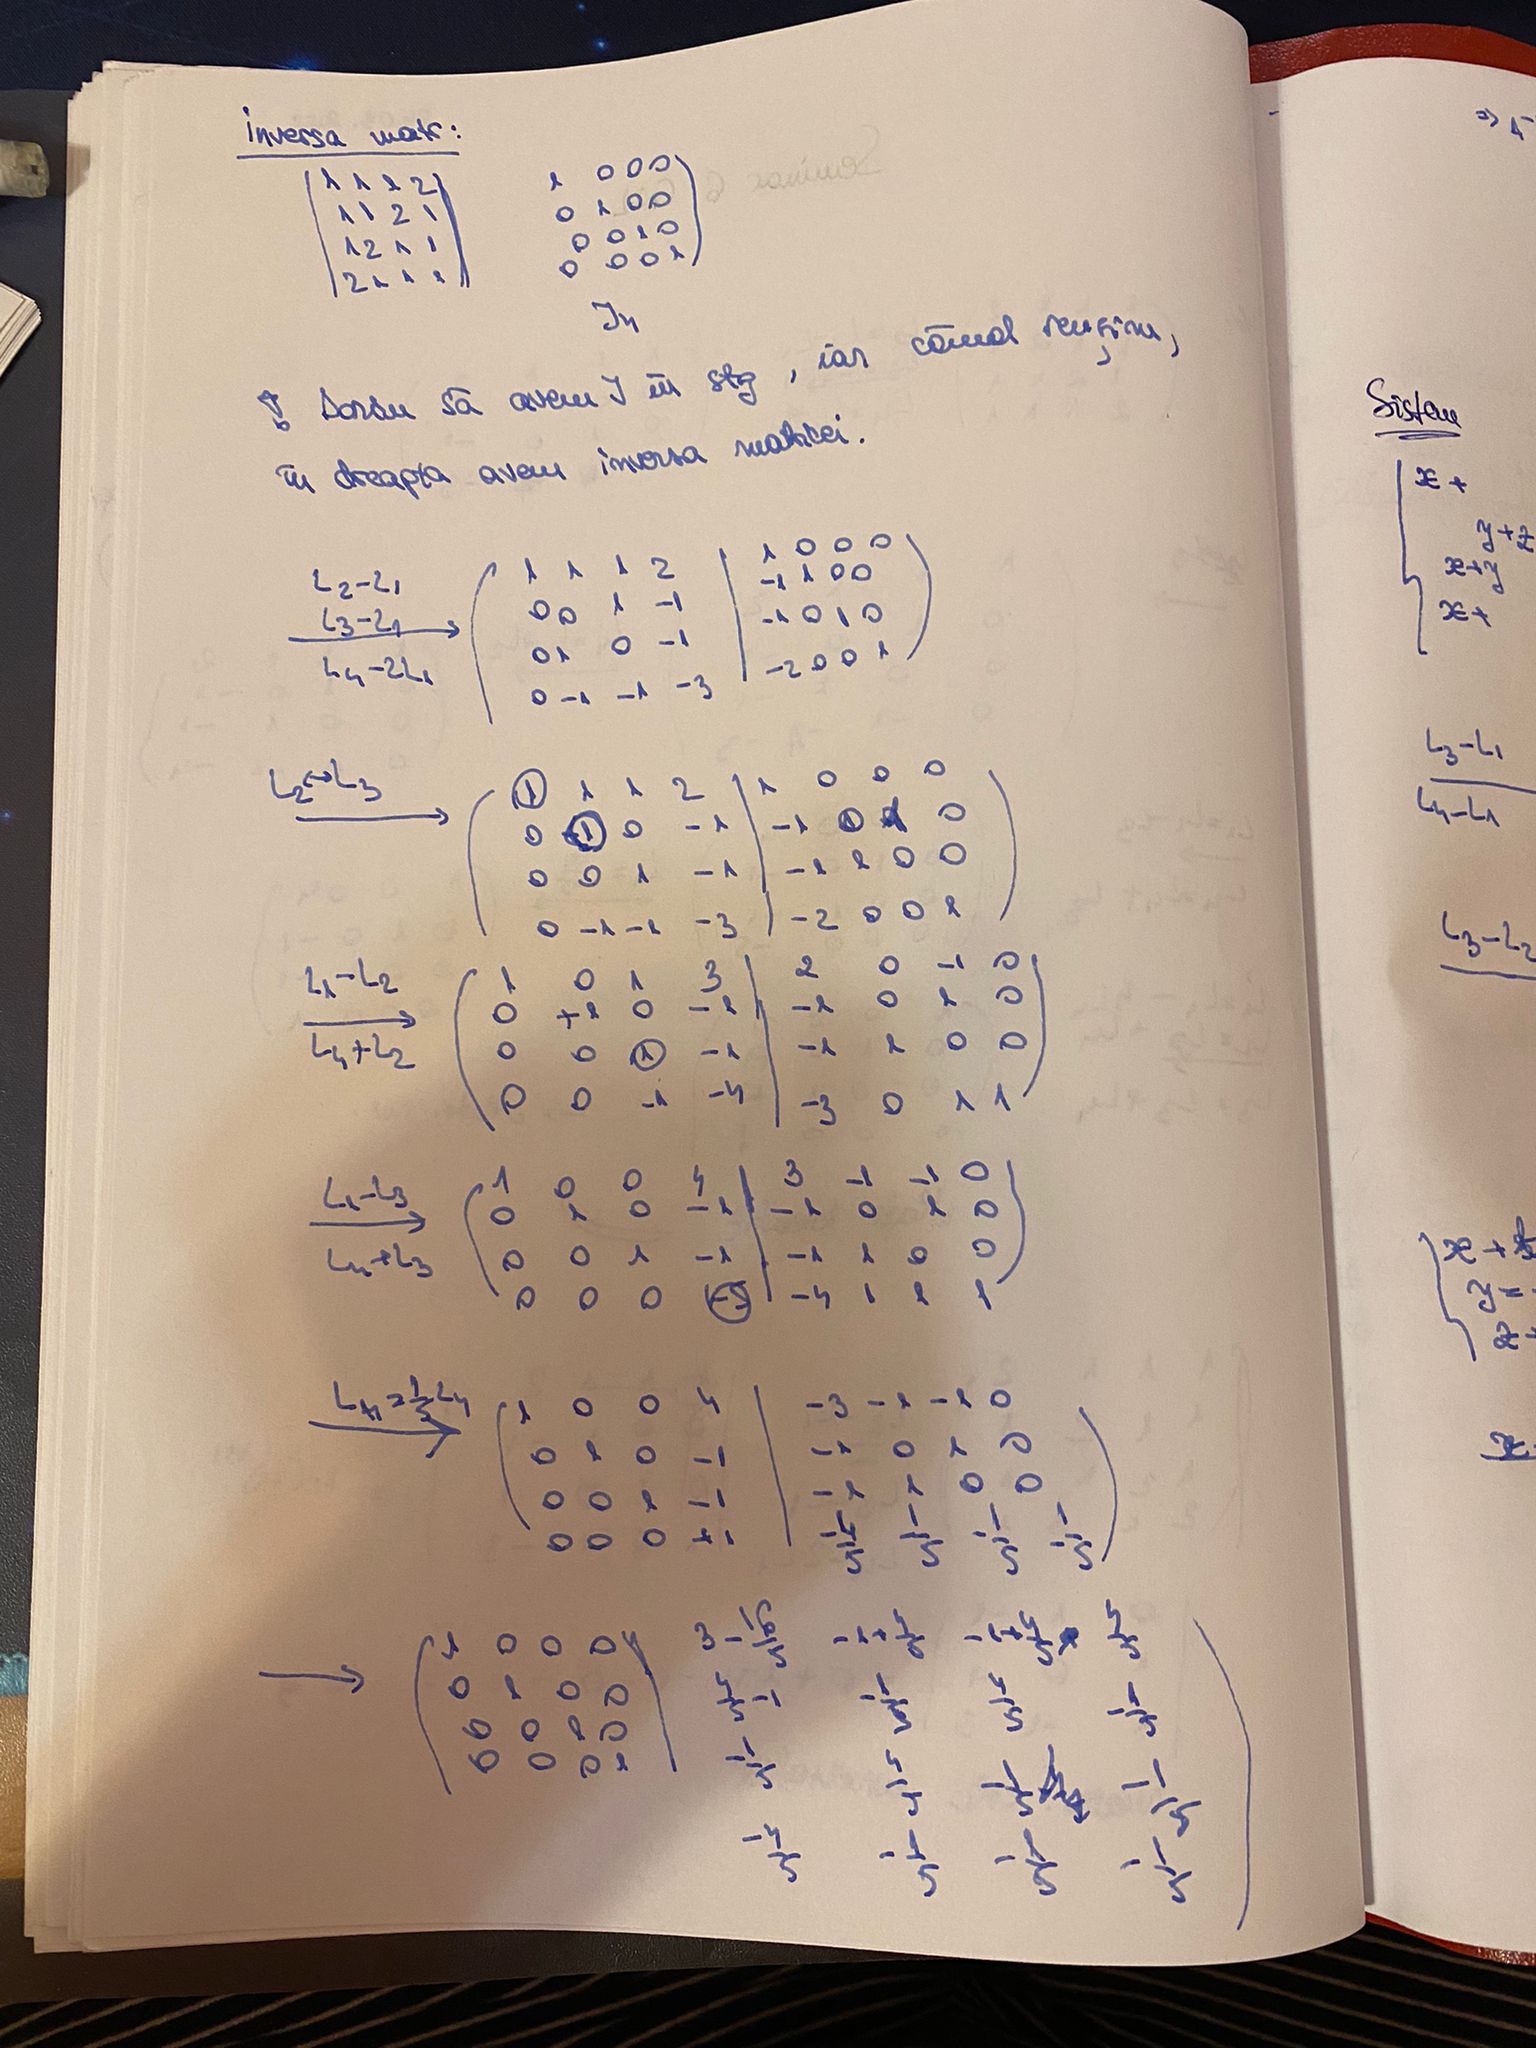 inversa matr:
( 1 1 1 2 | 1 0 0 0 )
1 1 2 1 | 0 1 0 0
1 2 1 1 | 0 0 1 0
2 1 1 1 | 0 0 0 1
I4
! Dorim să avem I în stg, iar când reușim,
în dreapta avem inversa matricei.
L2-L1
L3-L1
L4-2L1
( 1 1 1 2 | 1 0 0 0 )
0 0 1 -1 | -1 1 0 0
0 1 0 -1 | -1 0 1 0
0 -1 -1 -3 | -2 0 0 1
L2↔L3
( 1 1 1 2 | 1 0 0 0 )
0 1 0 -1 | -1 0 1 0
0 0 1 -1 | -1 1 0 0
0 -1 -1 -3 | -2 0 0 1
L1-L2
L4+L2
( 1 0 1 3 | 2 0 -1 0 )
0 +1 0 -1 | -1 0 1 0
0 0 1 -1 | -1 1 0 0
0 0 -1 -4 | -3 0 1 1
L1-L3
L4+L3
( 1 0 0 4 | 3 -1 -1 0 )
0 1 0 -1 | -1 0 1 0
0 0 1 -1 | -1 1 0 0
0 0 0 -5 | -4 1 1 1
( 1 0 0 4 | -3 -1 -1 0 )
0 1 0 -1 | -1 0 1 0
0 0 1 -1 | -1 1 0 0
0 0 0 +1
→ ( 1 0 0 0 | 3-16/5 -1+4/5 -1+4/5 4/5 )
0 1 0 0
0 0 1 0
0 0 0 1
Sistem
x+
y+z
x+y
x+
L3-L1
L4-L1
L3-L2